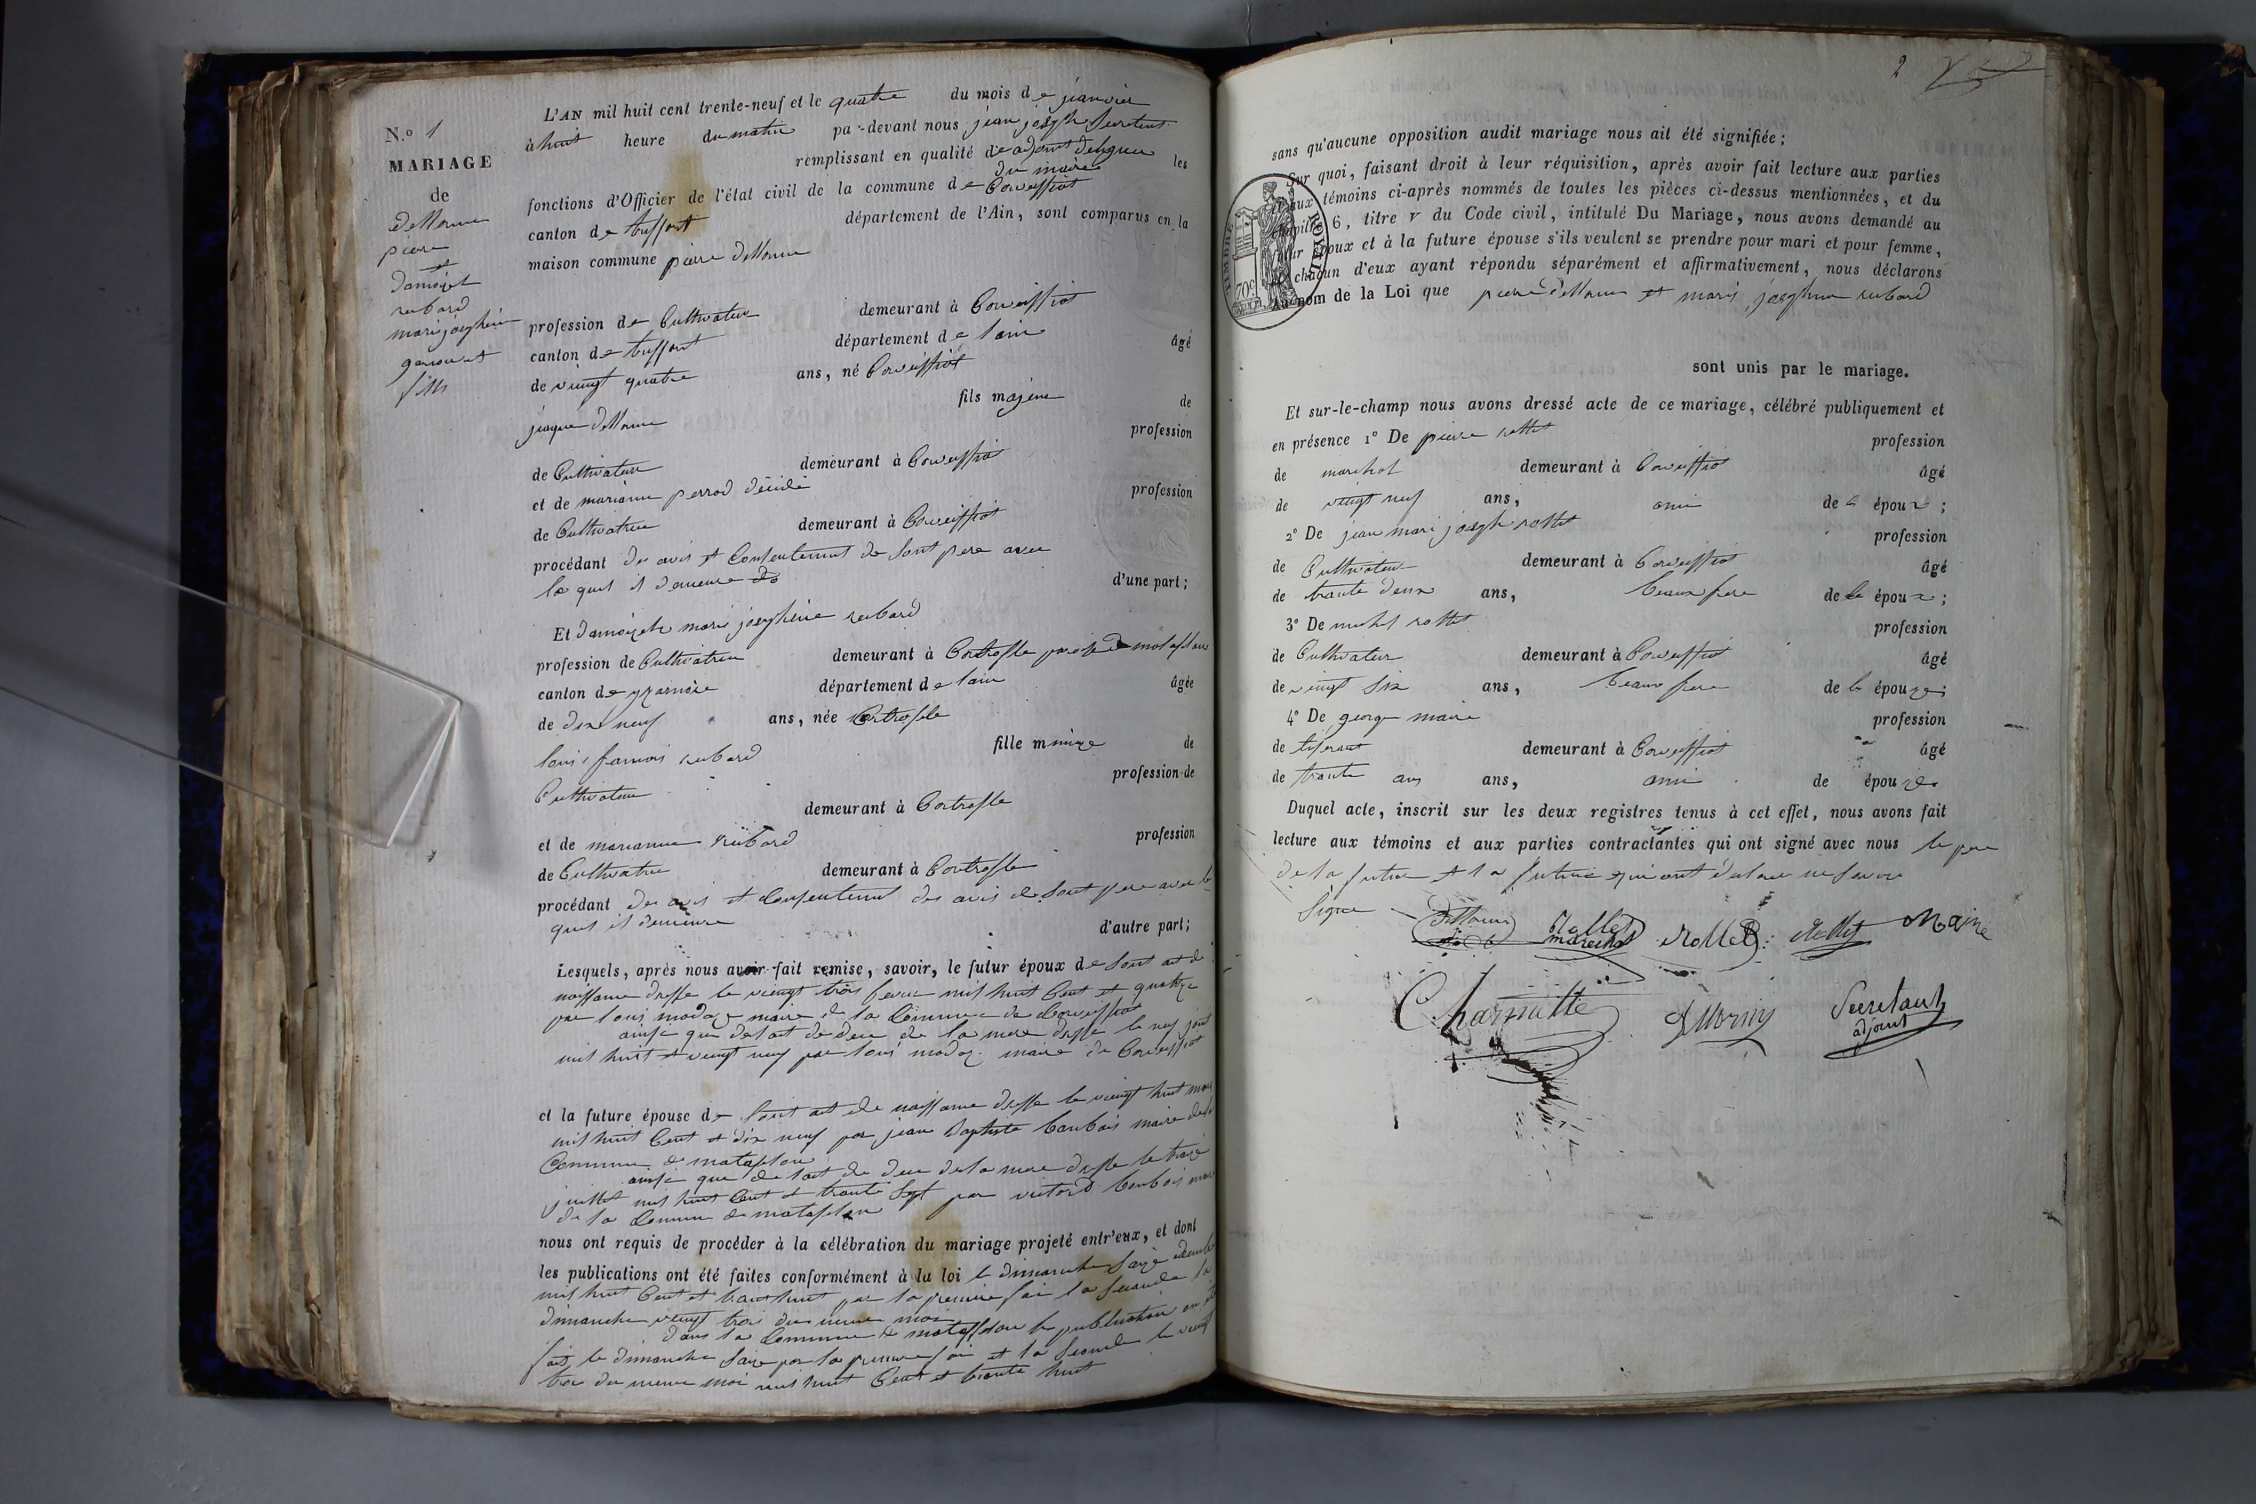 N.o 1
MARIAGE
de
pierre
et
damoizel
rubard
marie josephine
L'AN mil huit cent trente-neuf et le quatre du mois de janvier
à huit heure du matin par-devant nous jean joseph Secretant
remplissant en qualité de adjoint delegue les
du maire
fonctions d'Officier de l'état civil de la commune de Corveissiat
canton de treffort département de l'Ain, sont comparus en la
maison commune pierre
profession de Cultivateur demeurant à Corveissiat
canton de treffort département de lain âgé
de vingt quatre ans, né Corveissiat
fils majeur de
jaque profession
de Cultivateur demeurant à Corveissiat
et de marianne perrod décédé profession
de Cultivatrice demeurant à Corveissiat
procédant de avis et Consentement de sont pere avec
le quel il demeure d'une part;
Et damoizele marie josephine rubard
profession de Cultivatrice demeurant à
canton de département de lain âgée
de dix neuf ans, née
fille mineure de
louis rubard profession de
Cultivateur demeurant à
et de marianne rubard profession
de Cultivatrice demeurant à
procédant de avis et Consentement des avis de sont pere avec le
quel il demeure d'autre part;
Lesquels, après nous avoir fait remise, savoir, le futur époux de sont act de
naissance dresse le vingt trois mil huit Cent et quatorze
par louis maire de la Commune de Corveissiat
ainsi que de lact de de la mere dresse le neuf
mil huit et vingt neuf par louis maire de Corveissiat
et la future épouse de sont act de naissance dresse le vingt huit
mil huit Cent et dix neuf par jean Baptiste maire de la
Commune de mataflon
ainsi que de lact de de la mere dresse le
juillet mil huit Cent et trante sept par victord
de la Commune de mataflon
nous ont requis de procéder à la célébration du mariage projeté entr'eux, et dont
les publications ont été faites conformément à la loi le dimanche
mil huit Cent et trante huit par la premiere foi la seconde le
dimanche vingt trois du meme moi
dans la Commune de mataflon la publication
fait le dimanche par la premiere foi et la seconde le vingt
trois du meme moi mil huit Cent et trante huit
2
sans qu'aucune opposition audit mariage nous ait été signifiée;
Sur quoi, faisant droit à leur réquisition, après avoir fait lecture aux parties
et aux témoins ci-après nommés de toutes les pièces ci-dessus mentionnées, et du
chapitre 6, titre V du Code civil, intitulé Du Mariage, nous avons demandé au
futur époux et à la future épouse s'ils veulent se prendre pour mari et pour femme,
et chacun d'eux ayant répondu séparément et affirmativement, nous déclarons
au nom de la Loi que pierre et marie josephine rubard
TIMBRE ROYAL
70c
sont unis par le mariage.
Et sur-le-champ nous avons dressé acte de ce mariage, célébré publiquement et
en présence 1o De pierre rollet profession
de marechal demeurant à Corveissiat âgé
de vingt neuf ans, ami de l époux;
2o De jean mari joseph rollet profession
de Cultivateur demeurant à Corveissiat âgé
de trante deux ans, beaux frere de l époux;
3o De michel rollet profession
de Cultivateur demeurant à Corveissiat âgé
de vingt six ans, beaux frere de l épouxe;
4o De george maire profession
de tiserant demeurant à Corveissiat âgé
de trante ans ans, ami de épouxe
Duquel acte, inscrit sur les deux registres tenus à cet effet, nous avons fait
lecture aux témoins et aux parties contractantes qui ont signé avec nous le pere
de la future et la future qui ont declare ne savoir
signe
Rollet
marechal
Rollet Rollet Maire
Charnatte Secretant
adjoint